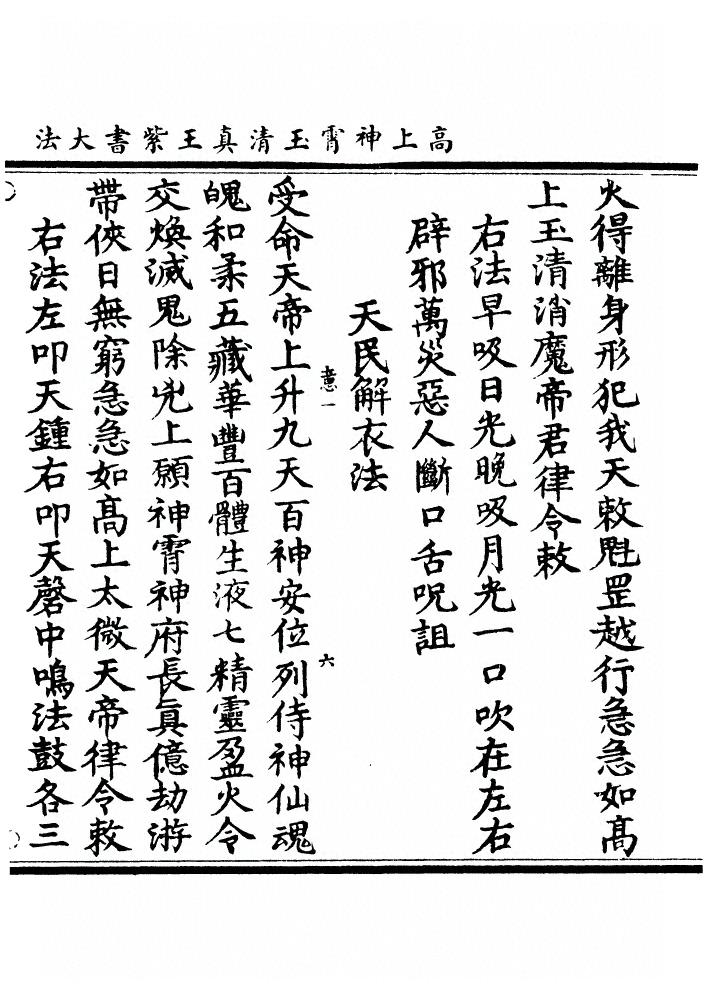 高上神霄玉清真王紫書大法
火得離身形犯我天敕魁罡越行急急如髙
上玉清消魔帝君律令敕
右法早吸日光晚吸月光一口吹在左右
辟邪萬災惡人斷口舌呪詛
天民解衣法
受命天帝上升九天百神安位列侍神仙魂
魄和柔五藏華豐百體生液七精靈盈火令
交煥滅鬼除兇上願神霄神府長眞億劫遊
帶俠日無窮急急如髙上太微天帝律令敕
右法左叩天鍾右叩天磬中鳴法鼓各三
一
六